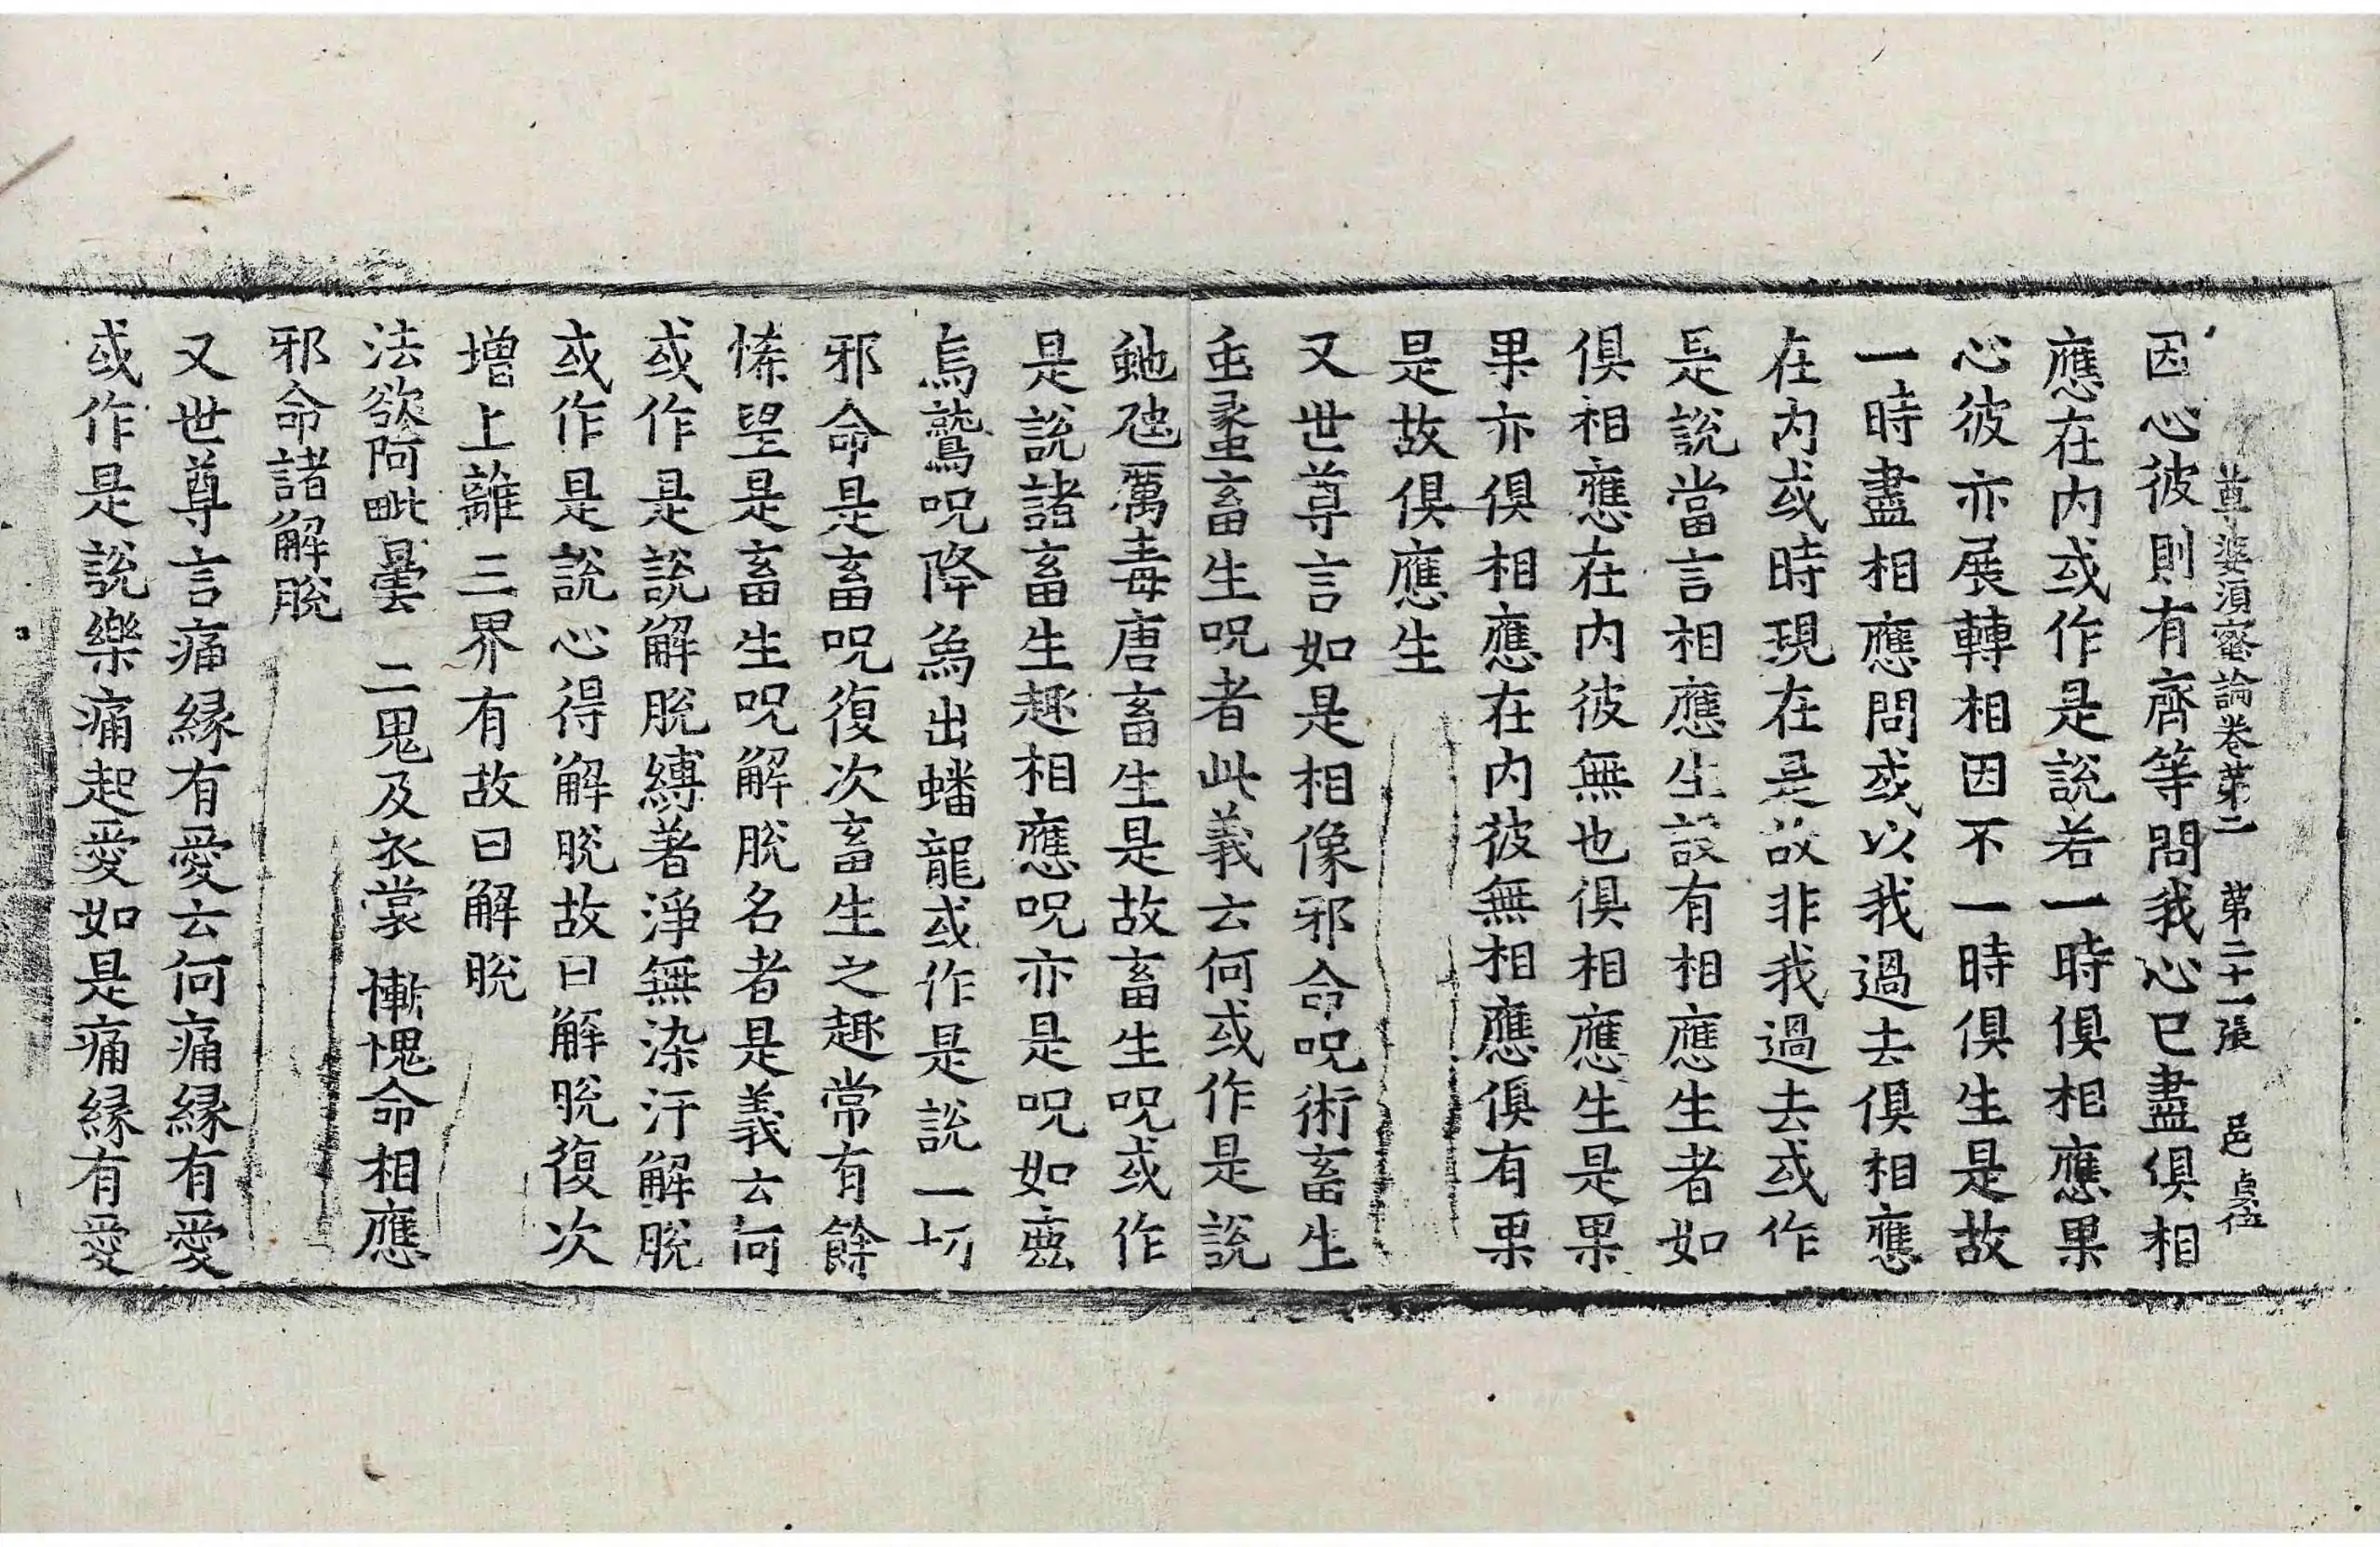 尊婆湏蜜論卷苐二　苐二十一張　邑
因心彼則有齊等問我心已盡俱相
應在内或作是說若一時俱相應果
心彼亦展轉相因不一時俱生是故
一時盡相應問或以我過去俱相應
在内或時現在是故非我過去或作
是說當言相應生設有相應生者如
俱相應在内彼無也俱相應生是果
果亦俱相應在内彼無相應俱有果
是故俱應生
又世尊言如是相像邪命呪術畜生
䖝䗍畜生呪者此義云何或作是說
虵虺厲毒唐畜生是故畜生呪或作
是說諸畜生趣相應呪亦是呪如
烏鷲呪降烏出蟠龍或作是說一切
邪命是畜呪復次畜生之趣常有餘
悕望是畜生呪解脫名者是義云何
或作是說解脫縛著淨無染汙解脫
或作是說心得解脫故曰解脫復次
增上離三界有故曰解脫
法欲阿毗曇　二鬼及衣裳　慚愧命相應
邪命諸解脫
又世尊言痛縁有愛云何痛縁有愛
或作是說樂痛起愛如是痛縁有愛